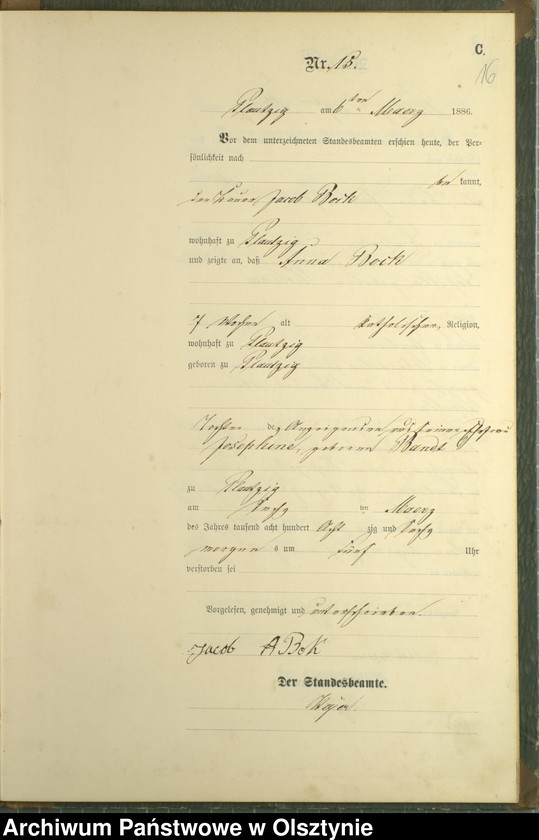 C.
16
Nr. 15.
Plautzig am 6ten Maerz 1886.
Vor dem unterzeichneten Standesbeamten erschien heute, der Per-
sönlichkeit nach
be kannt,
der Jacob Bock
wohnhaft zu Plautzig
und zeigte an, daß Anna Bock
7 Wochen alt katholischer Religion,
wohnhaft zu Plautzig
geboren zu Plautzig
Tochter des Anzeigenden und seiner Ehefrau
Josephine, geborene Bandt
zu Plautzig
am sechs ten Maerz
des Jahres tausend acht hundert acht zig und sechs
morgen s um fünf Uhr
verstorben sei
Vorgelesen, genehmigt und unterschrieben.
Jacob Bok
Der Standesbeamte.
Archiwum Państwowe w Olsztynie